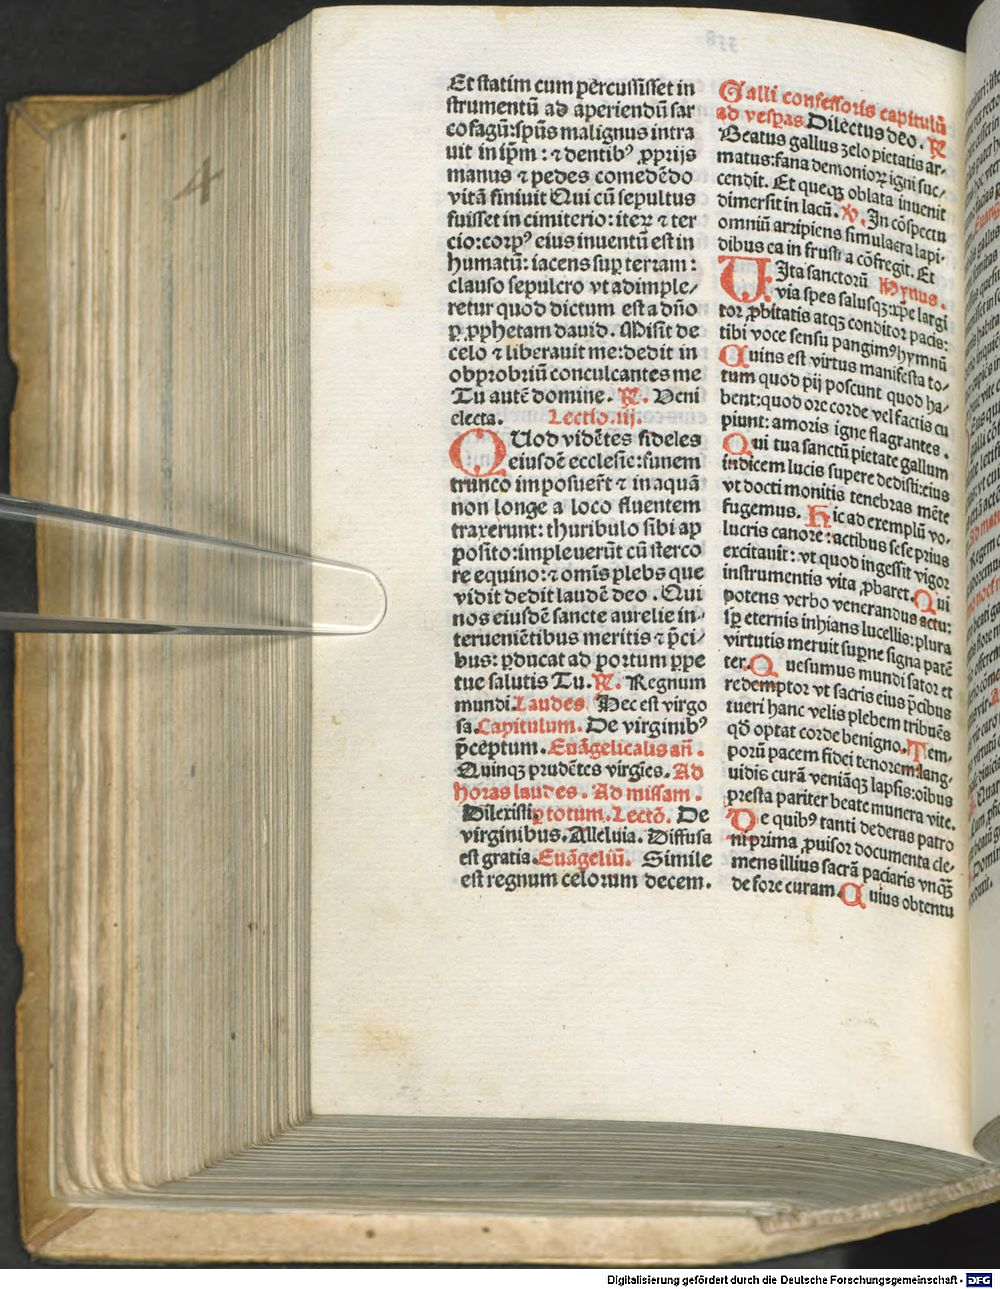 Et statim cum percussisset in
strumentū ad aperiendū sar
cofagū: spūs malignus intra
uit in ip̄m : ⁊ dentibꝰ ꝓprijs
manus ⁊ pedes comedēdo
vitā finiuit Qui cū sepultus
fuisset in cimiterio: iteꝝ ⁊ ter
cio: corpꝰ eius inuentū est in
humatū: iacens suꝑ terram:
clauso sepulcro vt adimple/
retur quod dictum est a dño
ꝑ ꝓphetam dauid. Misit de
celo ⁊ liberauit me: dedit in
obprobriū conculcantes me
Tu autē domine. ℟. Veni
electa. Lectio. iij.
QUod vidētes fideles
eiusdē ecclesie: funem
trunco imposuer̄t ⁊ in aquā
non longe a loco fluentem
traxerunt: thuribulo sibi ap
posito: impleuerūt cū sterco
re equino: ⁊ om̄is plebs que
vidit dedit laudē deo. Qui
nos eiusdē sancte aurelie in-
terueniētibus meritis ⁊ p̄ci/
bus: ꝑducat ad portum ꝑpe
tue salutis Tu. ℟. Regnum
mundi. Laudes Hec est virgo
sa. Capitulum. De virginibꝰ
p̄ceptum. Euāgelicalis añ.
Quinqꝫ prudētes virgīes. Ad
horas laudes. Ad missam.
Dilexisti ꝑ totum. Lectō. De
virginibus. Alleluia. Diffusa
est gratia. Euāgeliū. Simile
est regnum celorum decem.
Galli confessoris capitulū
ad vesꝑas Dilectus deo. ℟
Beatus gallus zelo pietatis ar-
matus: fana demonioꝝ igni suc/
cendit. Et queqꝫ oblata inuenit
dimersit in lacū. ℣. In cōspectu
omniū arripiens simulacra lapi-
dibus ea in frusta cōfregit. Et
VIta sanctorū Hymus.
via spes salusqꝫ: xp̄e largi
tor ꝓbitatis atqꝫ conditor pacis:
tibi voce sensu pangimꝰ hymnū
Cuius est virtus manifesta to-
tum quod pij poscunt quod ha-
bent: quod ore corde vel factis cu
piunt: amoris igne flagrantes.
Qui tua sanctū pietate gallum
indicem lucis supere dedisti: eius
vt docti monitis tenebras mēte
fugemus. Hic ad exemplū vo-
lucris canore: actibus sese prius
excitauit: vt quod ingessit vigor
instrumentis vita ꝓbaret. Qui
potens verbo venerandus actu:
sꝑ eternis inhians lucellis: plura
virtutis meruit suꝑne signa patē
ter. Quesumus mundi sator et
redemptor vt sacris eius p̄cibus
tueri hanc velis plebem tribuēs
qd̄ optat corde benigno. Tem-
porū pacem fidei tenorem: lang-
uidis curā veniāqꝫ lapsis: oībus
presta pariter beate munera vite.
De quibꝰ tanti dederas patro
ni prima ꝓuisor documenta cle-
mens illius sacrā paciaris vnqꝫ
de fore curam. Cuius obtentu
4
Digitalisierung gefördert durch die Deutsche Forschungsgemeinschaft - DFG